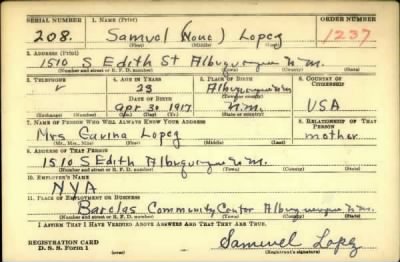 SERIAL NUMBER 1. NAME (Print) ORDER NUMBER
208. Samuel (None) Lopez 1237
(First) (Middle) (Last)
2. ADDRESS (Print)
1510 S Edith St Albuquerque N.M.
(Number and street or R. F. D. number) (Town) (County) (State)
3. TELEPHONE 4. AGE IN YEARS 5. PLACE OF BIRTH 6. COUNTRY OF CITIZENSHIP
23 Albuquerque
DATE OF BIRTH (Town or county)
Apr 30 1917 N.M. USA
(Exchange) (Number) (Mo.) (Day) (Yr.) (State or country)
7. NAME OF PERSON WHO WILL ALWAYS KNOW YOUR ADDRESS 8. RELATIONSHIP OF THAT PERSON
Mrs Gavina Lopez mother
(Mr., Mrs., Miss) (First) (Middle) (Last)
9. ADDRESS OF THAT PERSON
1510 S Edith Albuquerque N.M.
(Number and street or R. F. D. number) (Town) (County) (State)
10. EMPLOYER'S NAME
NYA
11. PLACE OF EMPLOYMENT OR BUSINESS
Barelas Community Center Albuquerque N.M.
(Number and street or R. F. D. number) (Town) (County) (State)
I AFFIRM THAT I HAVE VERIFIED ABOVE ANSWERS AND THAT THEY ARE TRUE.
REGISTRATION CARD
D. S. S. Form 1 (over) Samuel Lopez
(Registrant's signature)